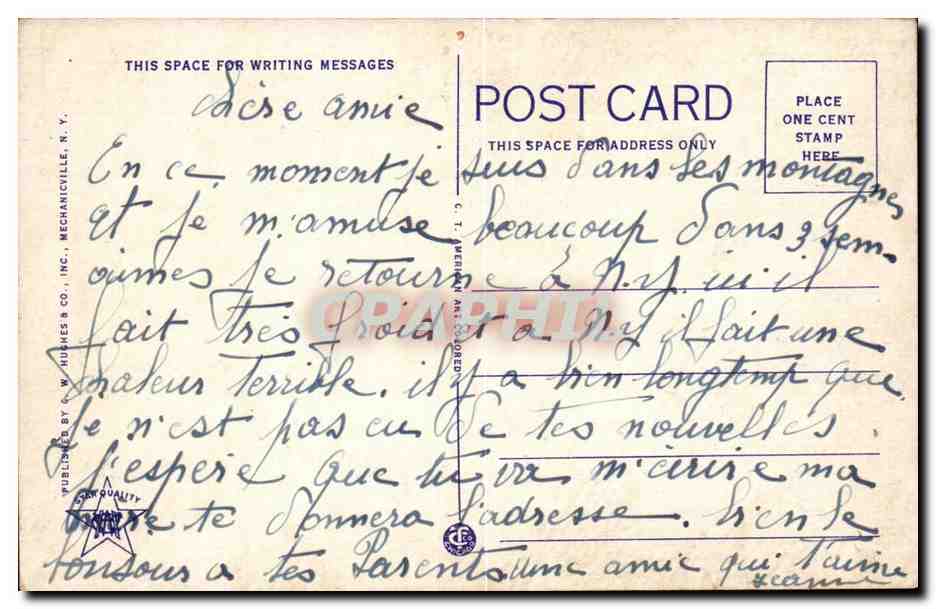 THIS SPACE FOR WRITING MESSAGES
POST CARD
THIS SPACE FOR ADDRESS ONLY
PLACE
ONE CENT
STAMP
HERE
PUBLISHED BY C. W. HUGHES & CO., INC., MECHANICVILLE, N. Y.
C. T. AMERICAN ART COLORED
STAR QUALITY
CHICAGO
CARPHIL
amie
En ce moment je suis dans les montagnes
et je m'amuse beaucoup dans 3 sem-
aines je retourne à N.Y. ici il
fait très froid et a N.Y il fait une
chaleur terrible. il y a bien longtemp que
je n'est pas eu de tes nouvelles.
J'espère que tu va m'écrire ma
mère te donnera l'adresse. bien le
bonjour a tes Parents une amie qui t'aime
Jeanne